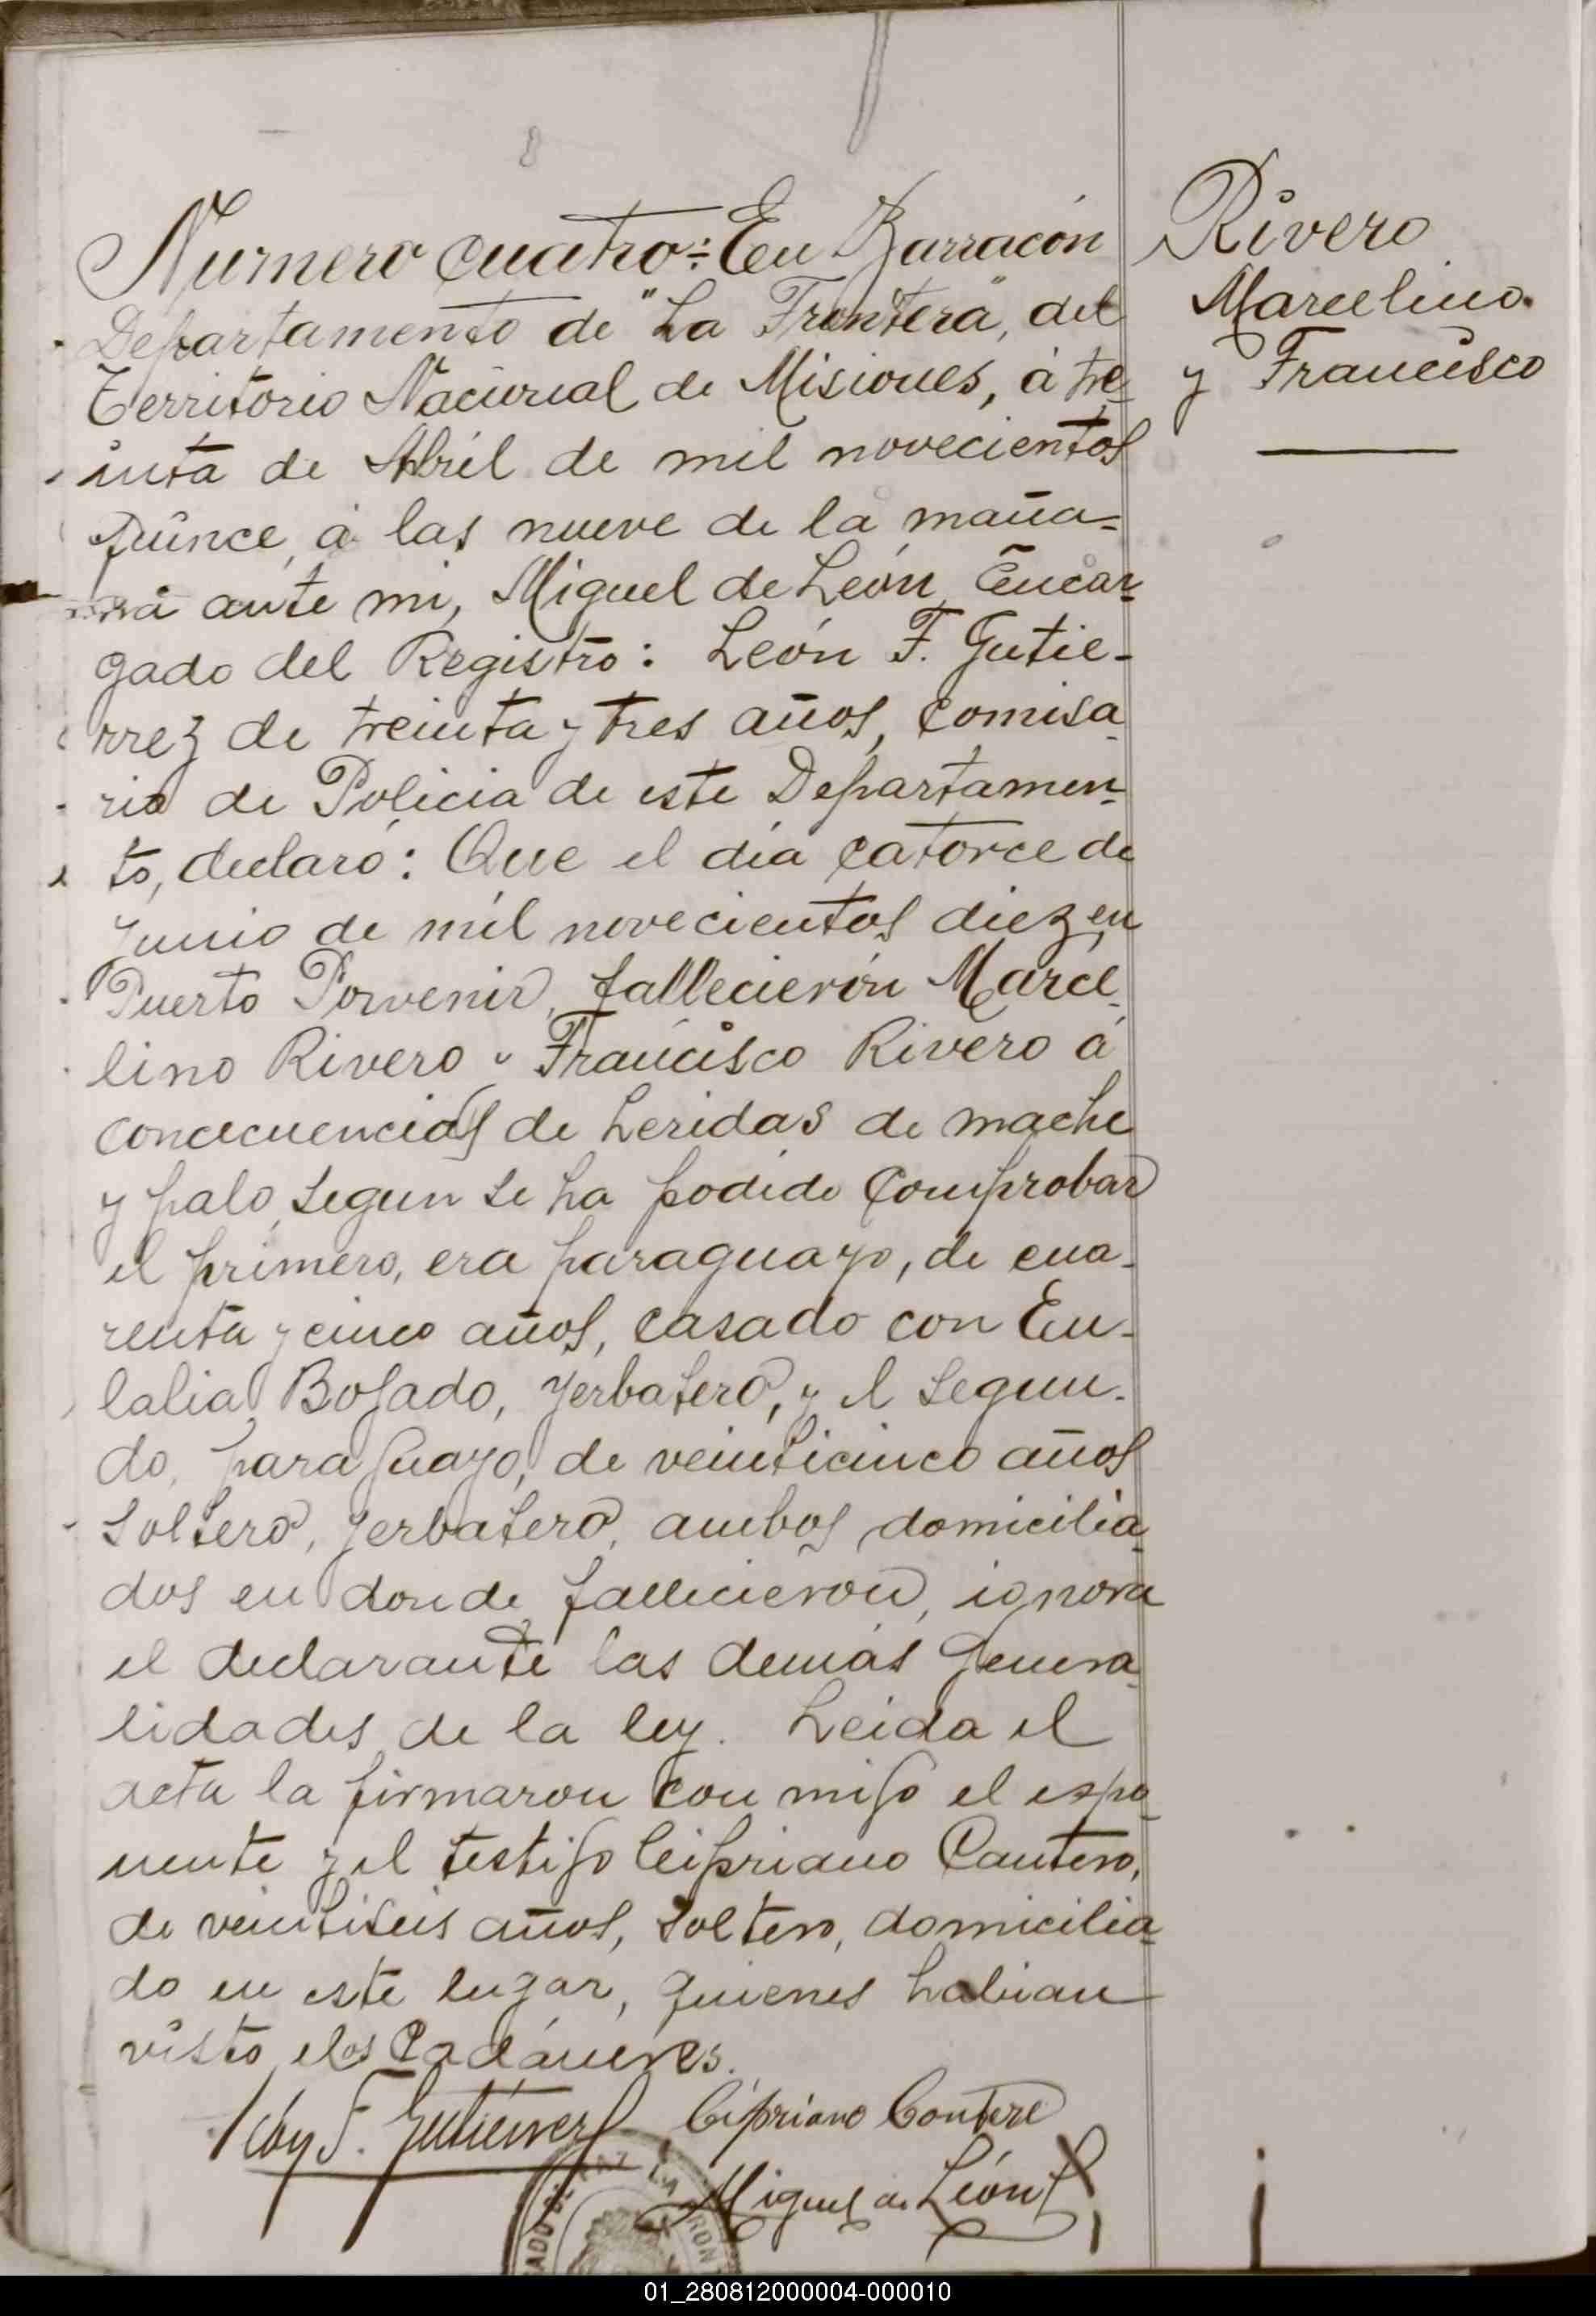 8
Numero cuatro: En Barracón
Departamento de "La Frontera", del
Territorio Nacional de Misiones, á tre-
inta de Abril de mil novecientos
quince, á las nueve de la maña-
na ante mi, Miguel de León, Encar-
gado del Registro: León F. Gutie-
rrez de treinta y tres años, comisa-
rio de Policia de este Departamen-
to, declaró: Que el día catorce de
Junio de mil novecientos diez, en
Puerto Porvenir, fallecierón Marce-
lino Rivero y Francisco Rivero á
concecuencias de heridas de mache
y palo, segun se ha podido comprobar
el primero, era paraguayo, de cua-
renta y cinco años, casado con Eu-
lalia Bogado, yerbatero, y el segun-
do, paraguayo, de veinticinco años
soltero, yerbatero, ambos domicilia-
dos en donde fallecieron, ignora
el declarante las demás genera-
lidades de la ley. Leida el
acta la firmaron con migo el espo-
nente y el testigo Cipriano Cantero,
de veintiseis años, soltero, domicilia-
do en este lugar, quienes habian
visto elos Cadáveres.
León F. Gutiérrez Cipriano Contere
Miguel de León
LA FRON
Rivero
Marcelino
y Francisco
01_280812000004-000010